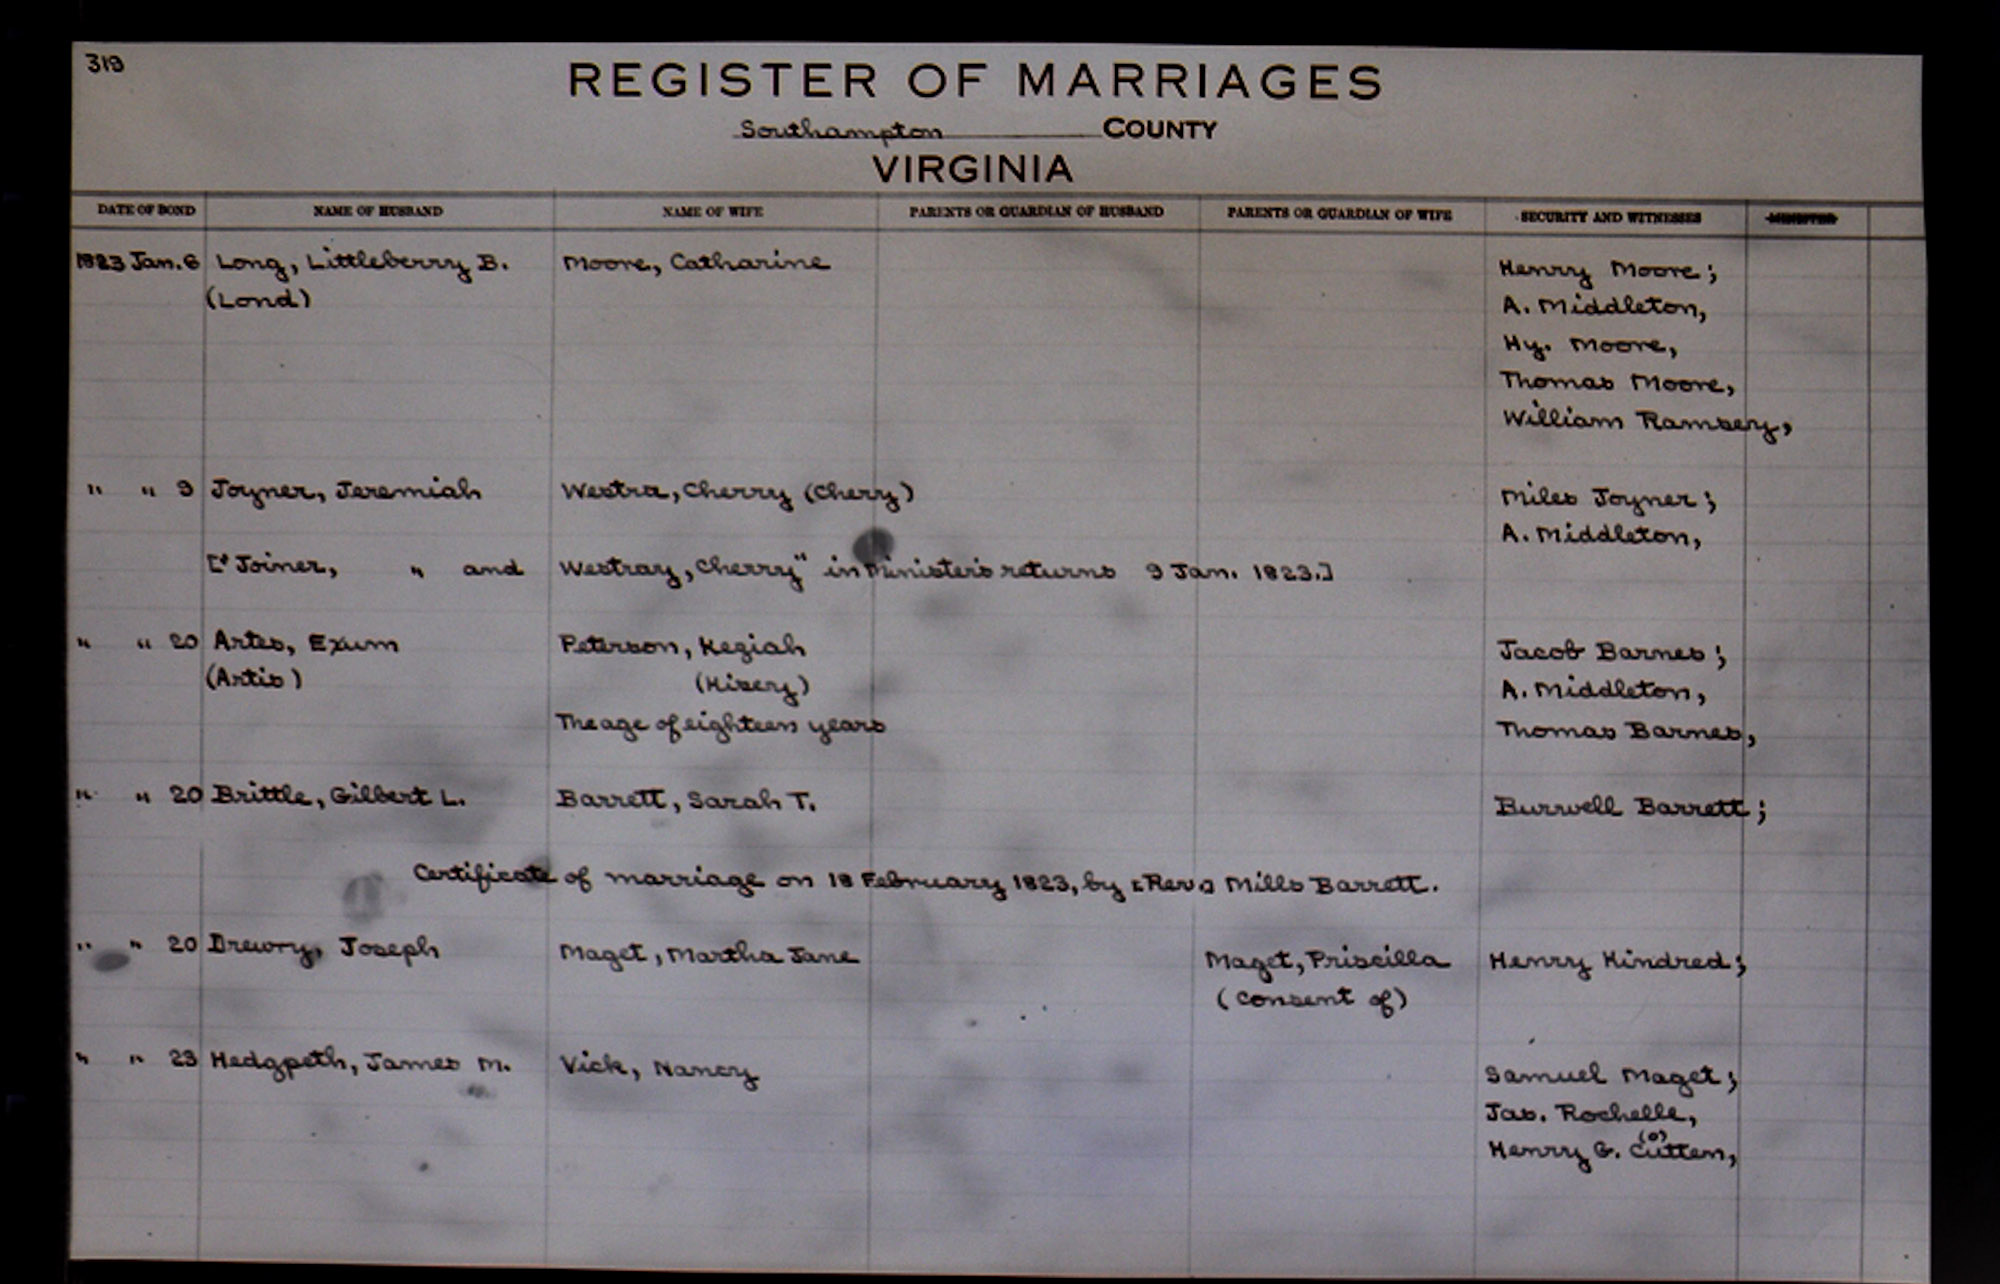 319
REGISTER OF MARRIAGES
Southampton COUNTY
VIRGINIA
DATE OF BOND NAME OF HUSBAND NAME OF WIFE PARENTS OR GUARDIAN OF HUSBAND PARENTS OR GUARDIAN OF WIFE SECURITY AND WITNESSES MINISTER
1823 Jan. 6 Long, Littleberry B. Moore, Catharine Henry Moore;
(Lond) A. Middleton,
Hy. Moore,
Thomas Moore,
William Ramsery,
" " 9 Joyner, Jeremiah Westra, Cherry (Chery) Miles Joyner;
A. Middleton,
["Joiner, " and Westray, Cherry" in Minister's returns 9 Jan. 1823.]
" " 20 Artes, Exum Peterson, Keziah Jacob Barnes;
(Artis) (Kisery) A. Middleton,
The age of eighteen years Thomas Barnes,
" " 20 Brittle, Gilbert L. Barrett, Sarah T. Burwell Barrett;
Certificate of marriage on 18 February 1823, by [Rev.] Mills Barrett.
" " 20 Drewry, Joseph Maget, Martha Jane Maget, Priscilla Henry Kindred;
(consent of)
" " 23 Hedgpeth, James M. Vick, Nancy Samuel Maget;
Jas. Rochelle,
(o)
Henry G. Cutten,